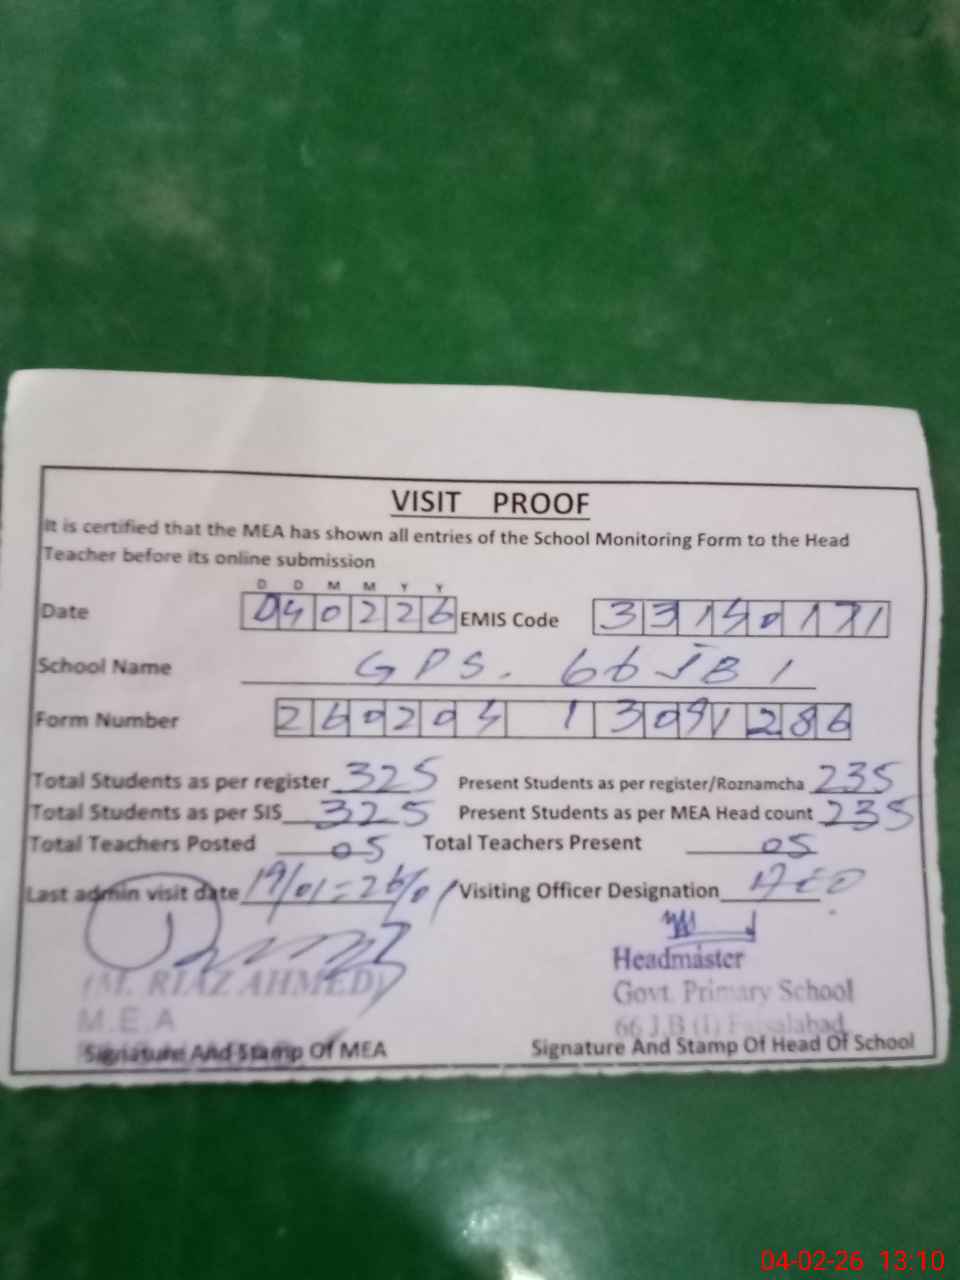 VISIT PROOF
It is certified that the MEA has shown all entries of the School Monitoring Form to the Head
Teacher before its online submission
D D M M Y Y
Date 040226 EMIS Code 33140171
School Name GPS. 66 JB 1
Form Number 260204 1309 1286
Total Students as per register 325 Present Students as per register/Roznamcha 235
Total Students as per SIS 325 Present Students as per MEA Head count 235
Total Teachers Posted 05 Total Teachers Present 05
Last admin visit date 19/01=26/01 Visiting Officer Designation AEO
(M. RIAZ AHMED)
M.E.A
Signature And Stamp Of MEA
Headmaster
Govt. Primary School
66 J.B (I) Faisalabad
Signature And Stamp Of Head Of School
04-02-26 13:10